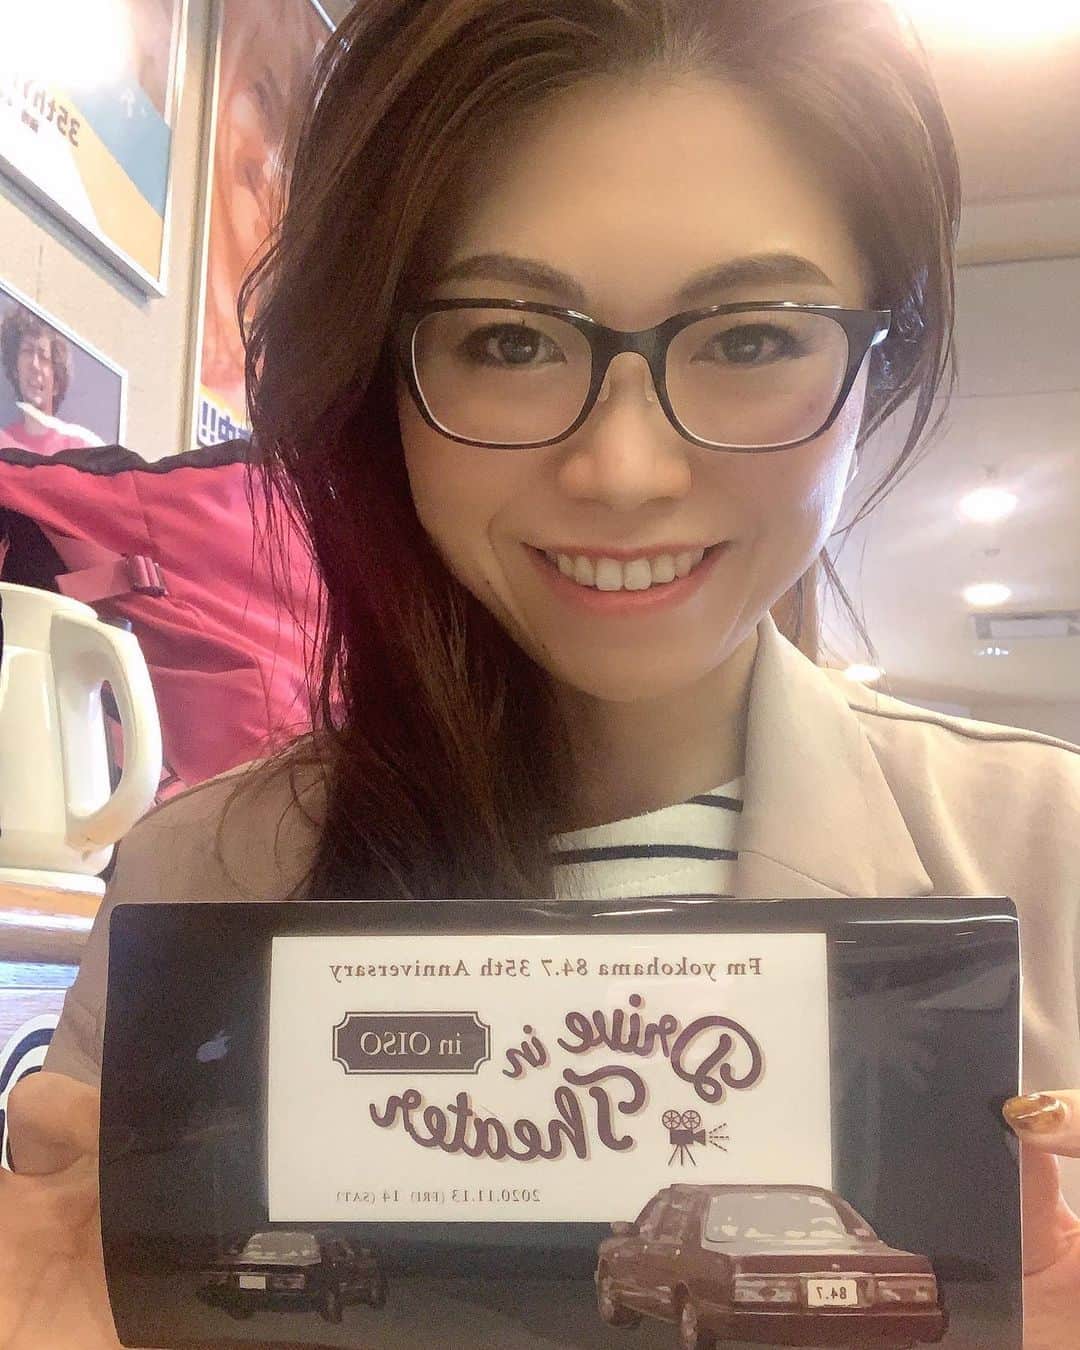 35th
!!
Fm yokohama 84.7 35th Anniversary
Drive in
in OISO
Theater
2020.11.13 (FRI) 14 (SAT)
84.7